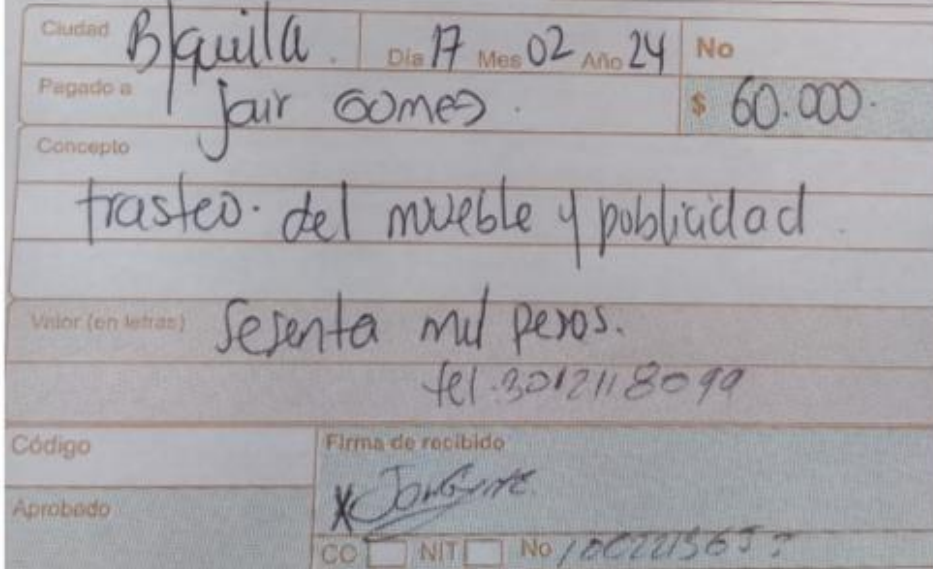 Ciudad B/quilla. Día 17 Mes 02 Año 24 No
Pagado a Jair Gomez. $ 60.000.
Concepto
trasteo. del mueble y poblicidad.
Valor (en letras) Sesenta mil pesos.
tel. 3012118099
Código Firma de recibido
Aprobado
CC NIT No